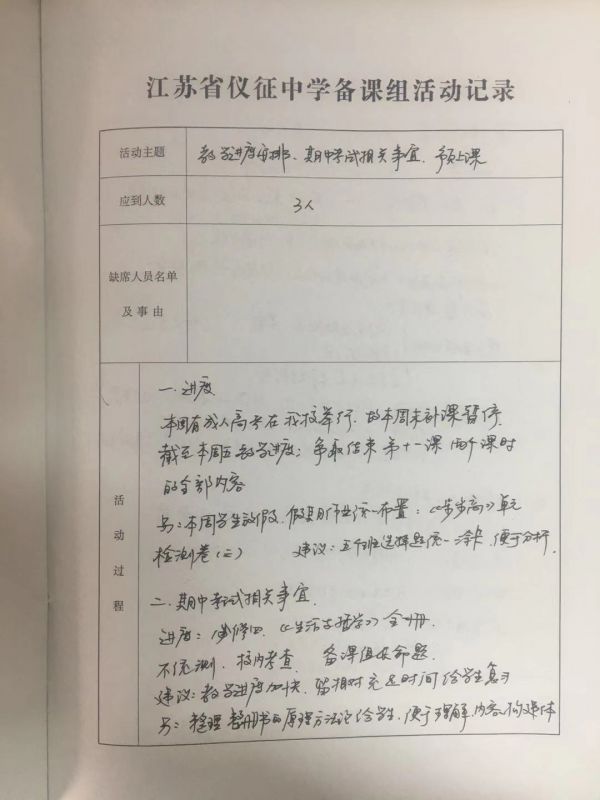 江苏省仪征中学备课组活动记录
活动主题 教学进度安排、期中考试相关事宜、预上课
应到人数 3人
缺席人员名单
及事由
活动过程
一.进度
本周有成人高考在我校举行,故本周末补课暂停,
截至本周五教学进度:争取结束第十一课两个课时
的全部内容
另:本周学生放假,假期作业统一布置:《步步高》单元
检测卷(三) 建议:五个班选择题统一涂卡,便于分析.
二.期中考试相关事宜.
进度:必修四《生活与哲学》全册.
不统测,校内考查. 备课组长命题.
建议:教学进度加快,留相对充足时间给学生复习
另:整理整册书的原理方法论给学生,便于理解.内容